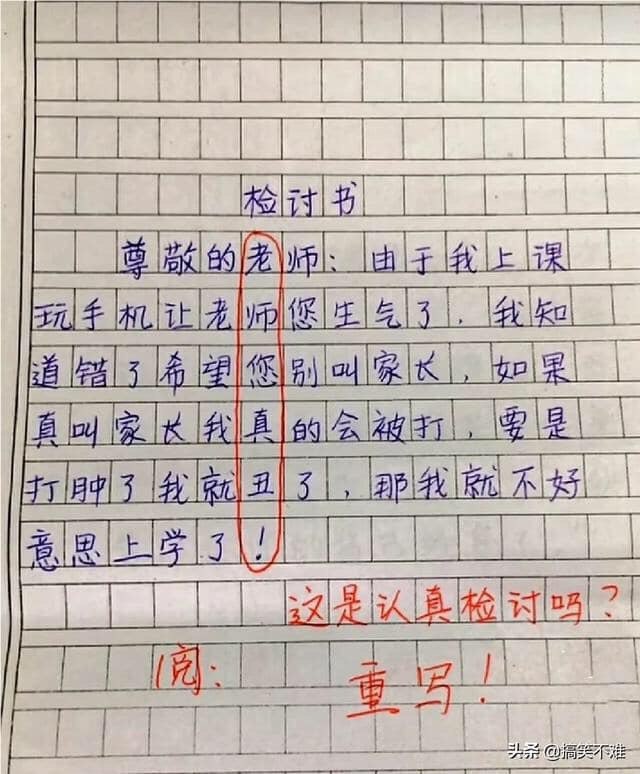 检讨书
尊敬的老师：由于我上课
玩手机让老师您生气了．我知
道错了希望您别叫家长，如果
真叫家长我真的会被打，要是
打肿了我就丑了，那我就不好
意思上学了！
这是认真检讨吗？
阅：
重写！
头条 @搞笑不难